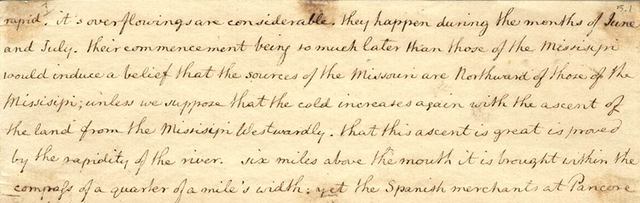 rapid. it's overflowings are considerable. they happen during the months of June
and July. their commencement being so much later than those of the Missisipi
would induce a belief that the sources of the Missouri are Northward of those of the
Missisipi; unless we suppose that the cold increases again with the ascent of
the land from the Missisipi Westwardly. that this ascent is great is proved
by the rapidity of the river. six miles above the mouth it is brought within the
compass of a quarter of a mile's width: yet the Spanish merchants at Pancore